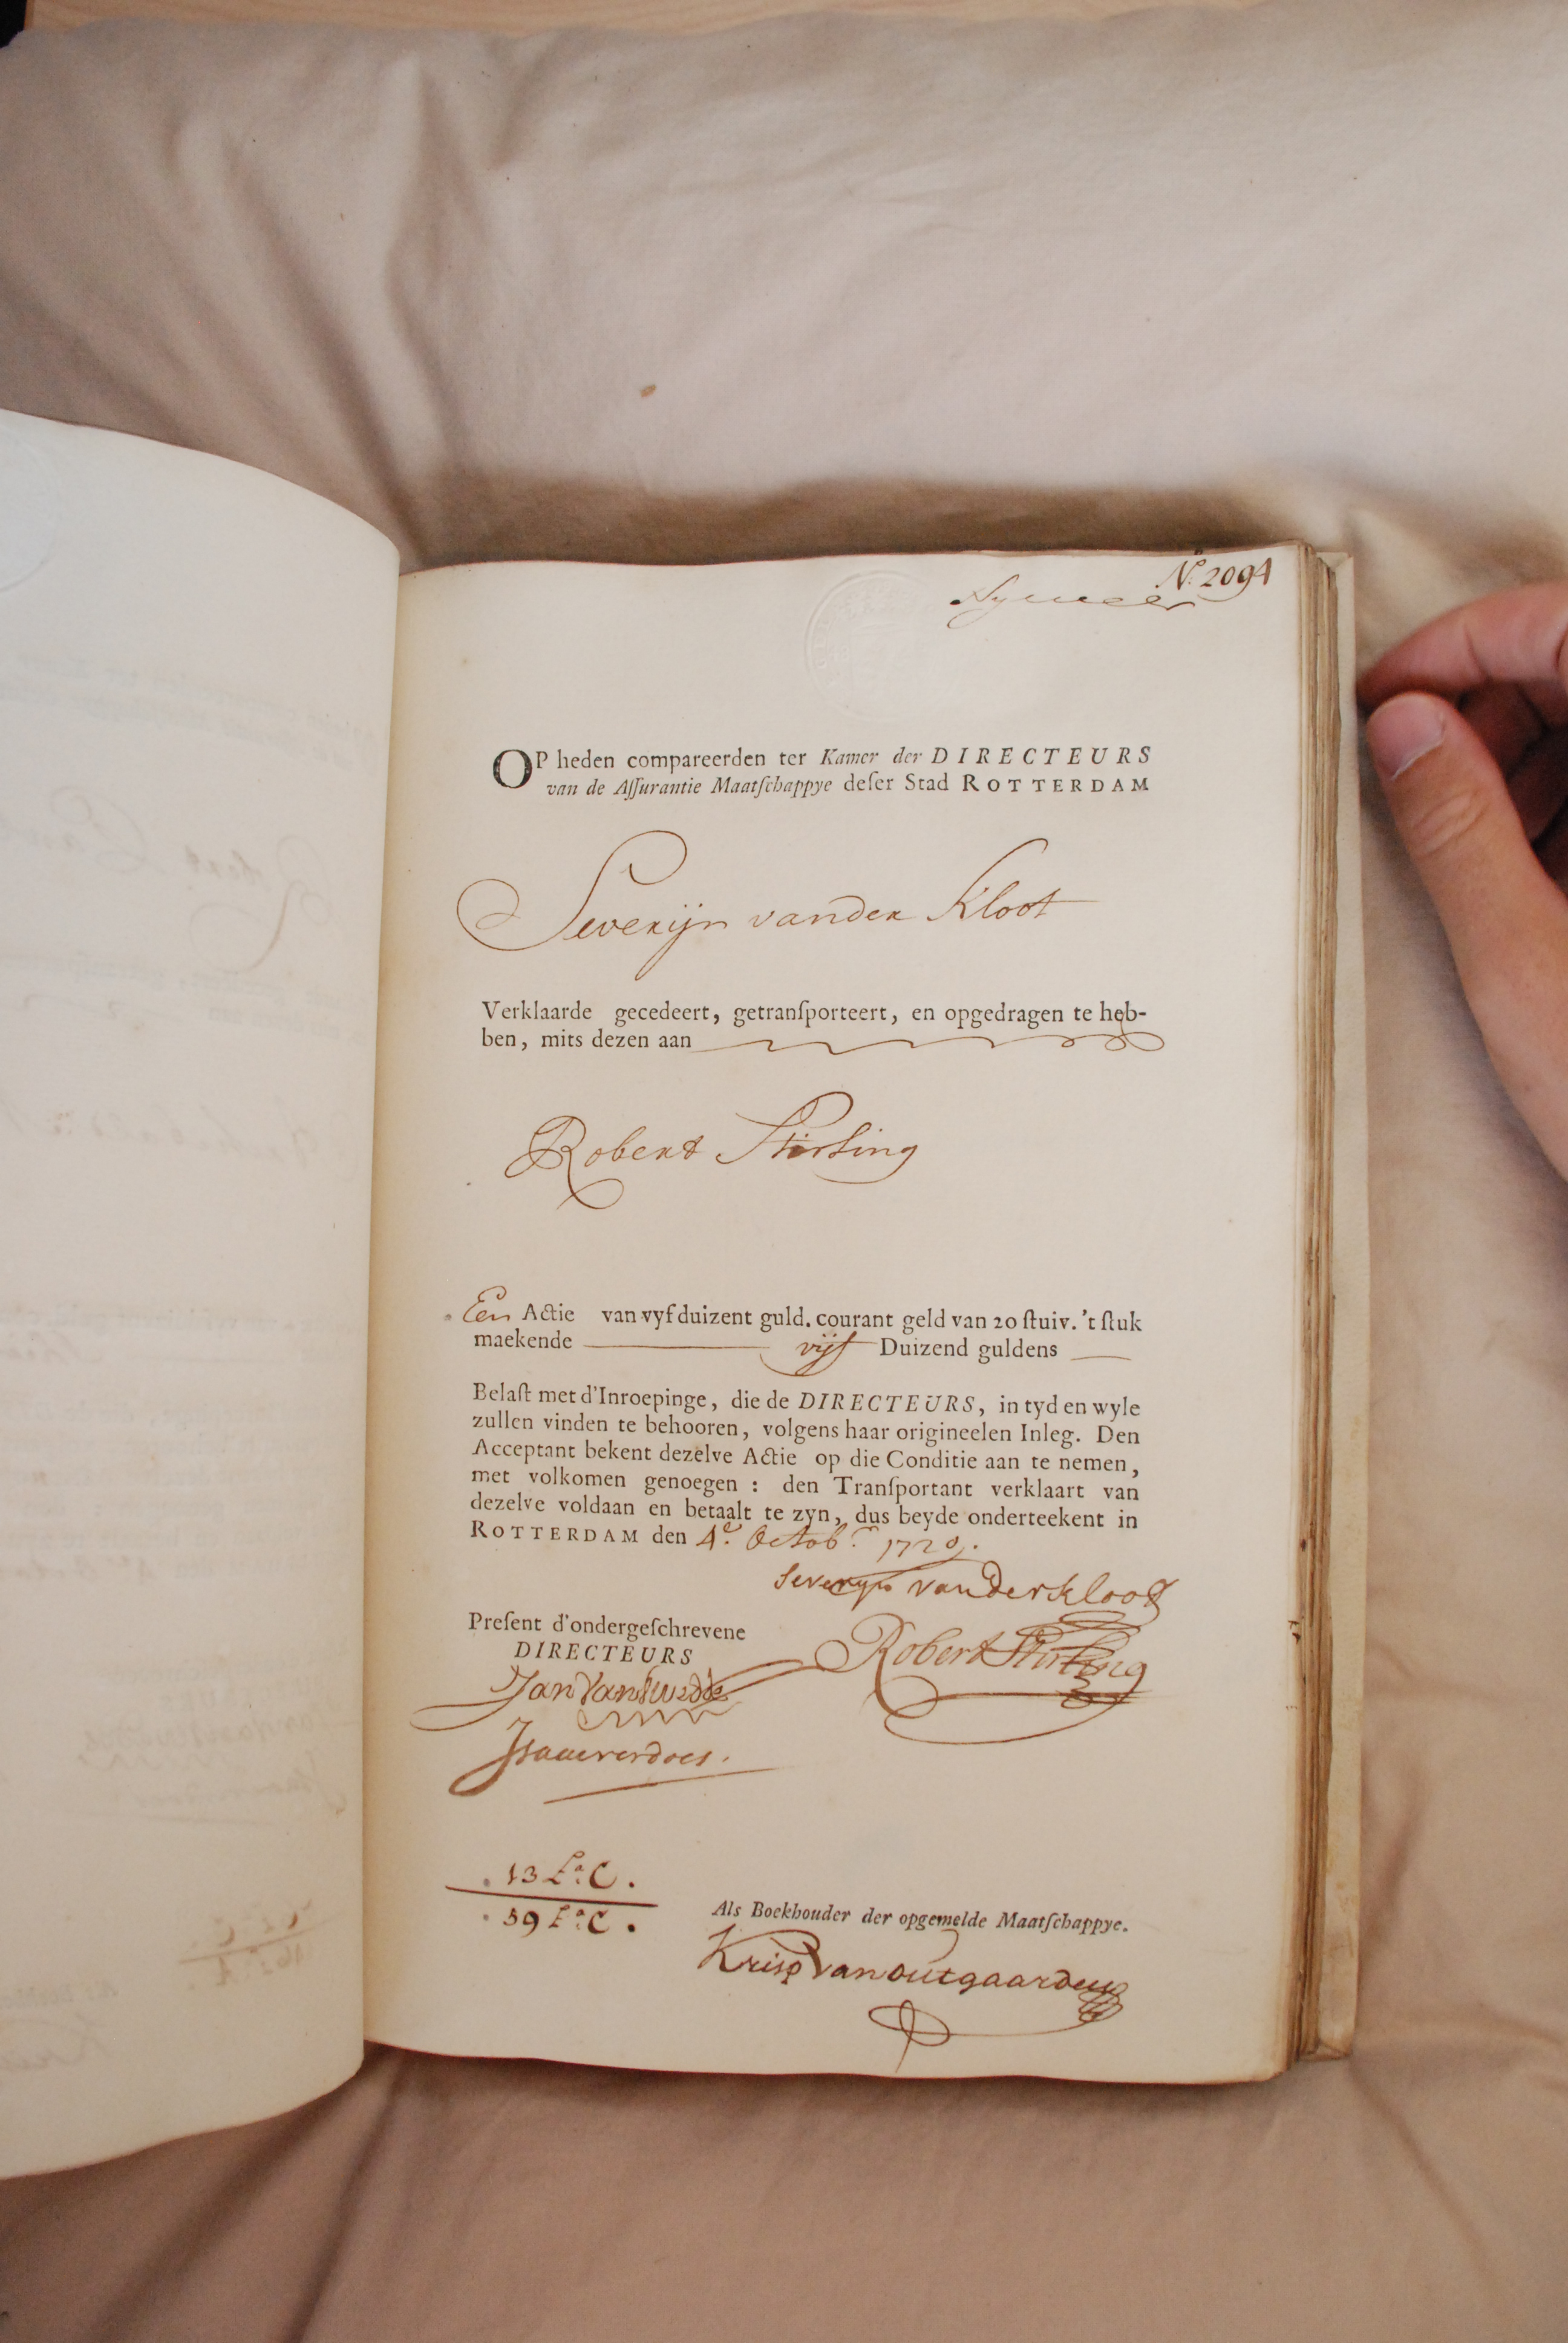 Nº 2094
OP heden compareerden ter Kamer der DIRECTEURS
van de Aſſurantie Maatſchappye deſer Stad ROTTERDAM
Severijn vander Kloot
Verklaarde gecedeert, getranſporteert, en opgedragen te heb-
ben, mits dezen aan
Robert Stirling
Een Actie van vyf duizent guld. courant geld van 20 ſtuiv. 't ſtuk
maekende vijf Duizend guldens
Belaſt met d'Inroepinge, die de DIRECTEURS, in tyd en wyle
zullen vinden te behooren, volgens haar origineelen Inleg. Den
Acceptant bekent dezelve Actie op die Conditie aan te nemen,
met volkomen genoegen : den Tranſportant verklaart van
dezelve voldaan en betaalt te zyn, dus beyde onderteekent in
ROTTERDAM den 4e. Octobr. 1720.
Severyn vander kloot
Preſent d'ondergeſchrevene
DIRECTEURS
Robert Stirling
Jan Van
Isaac verdoes.
13 La C.
59 La C.
Als Boekhouder der opgemelde Maatſchappye.
Krisp Van outgaarden